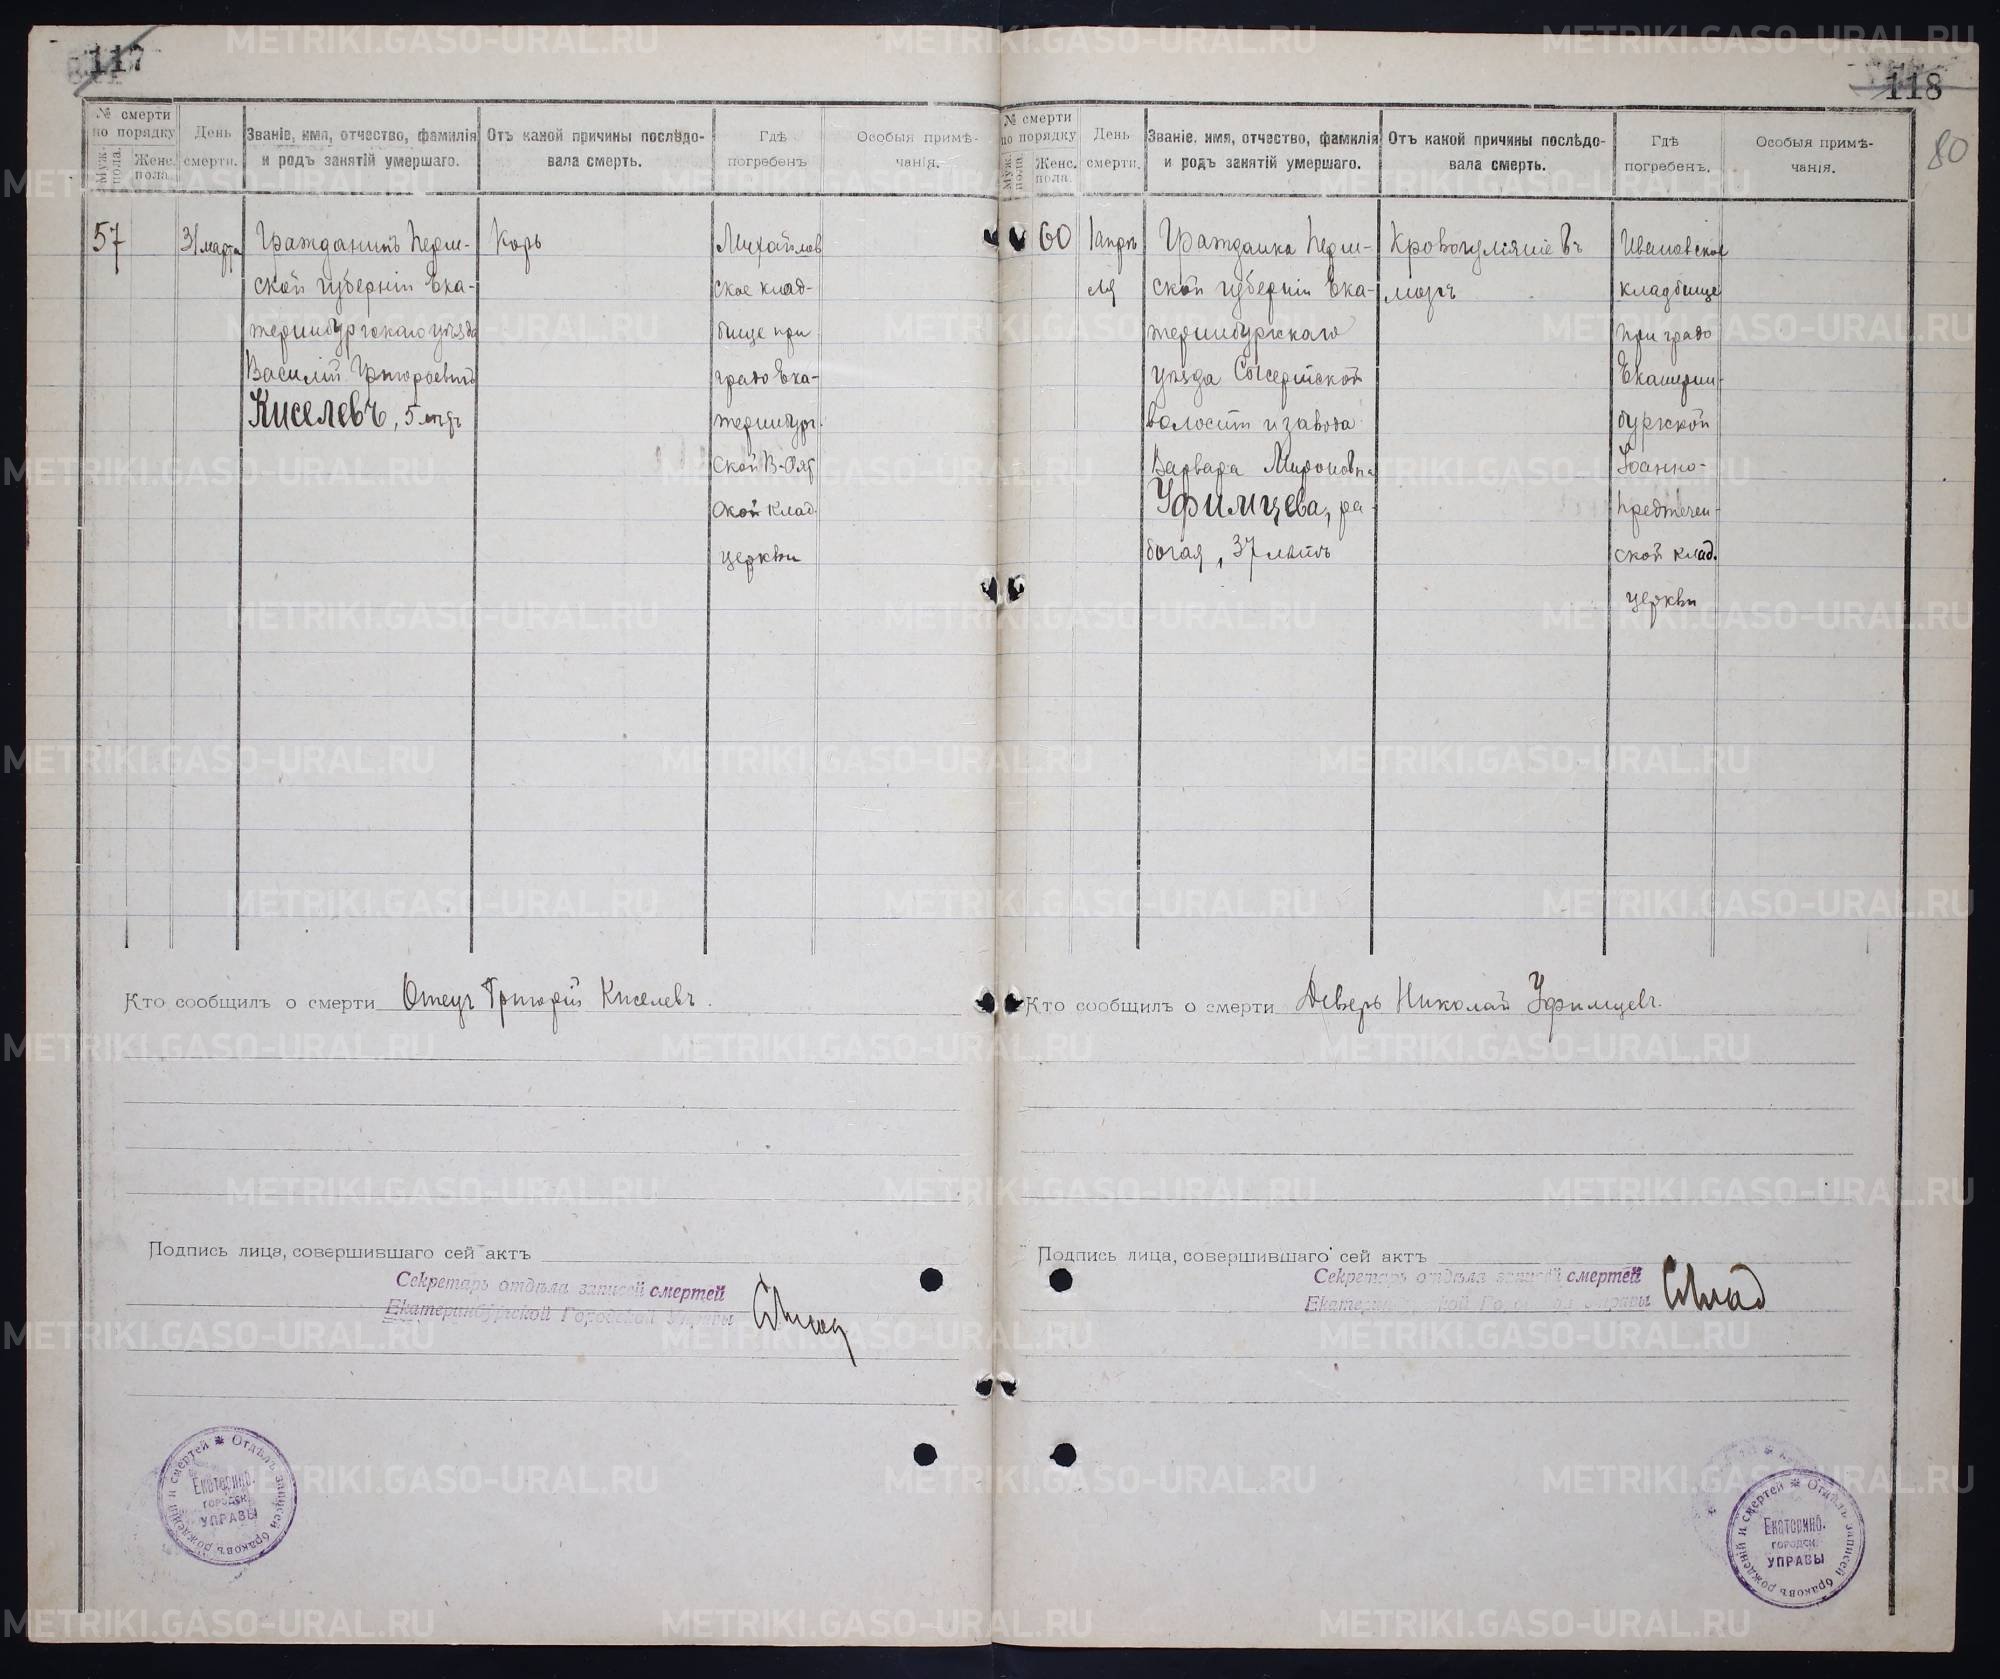 117
№ смерти
по порядку
Муж.
пола.
Женс.
пола.
День
смерти.
Званіе, имя, отчество, фамилія
и родъ занятій умершаго.
Отъ какой причины послѣдо-
вала смерть.
Гдѣ
погребенъ
Особыя примѣ-
чанія.
57
31 марта
Гражданинъ Перм-
ской губерніи Ека-
теринбургскаго уѣзда
Василій Григорьевичъ
Киселевъ, 5 мѣс.
Корь
Михайлов
ское клад-
бище при
градо Ека-
теринбург.
ской В-
ской клад.
церкви
Кто сообщилъ о смерти Отецъ Григорій Киселевъ.
Подпись лица, совершившаго сей актъ
Секретарь отдѣла записей смертей
Екатеринбургской Городской Управы
Отдѣлъ записей браковъ рожденій и смертей
Екатеринб.
городск.
УПРАВЫ
118
80
№ смерти
по порядку
Муж.
пола.
Женс.
пола.
День
смерти.
Званіе, имя, отчество, фамилія
и родъ занятій умершаго.
Отъ какой причины послѣдо-
вала смерть.
Гдѣ
погребенъ.
Особыя примѣ-
чанія.
60
1 апрѣ
ля
Гражданка Перм-
ской губерніи Ека-
теринбургскаго
уѣзда Сысертской
волости и завода
Варвара Мироновна
Уфимцева, ра-
бочая, 37 лѣтъ
Кровоизліяніе въ
мозгъ
Ивановское
кладбище
при градо
Екатерин-
бургской
Іоанно-
предтечен-
ской клад.
церкви
Кто сообщилъ о смерти Деверь Николай Уфимцевъ.
Подпись лица, совершившаго сей актъ
Секретарь отдѣла записей смертей
Екатеринбургской Городской Управы
Отдѣлъ записей браковъ рожденій и смертей
Екатеринб.
городск.
УПРАВЫ
METRIKI.GASO-URAL.RU